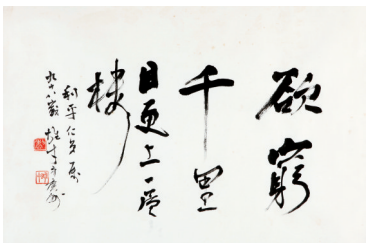 欲窮
千里
目更上一層
樓
利平仁兄属
九十八歲